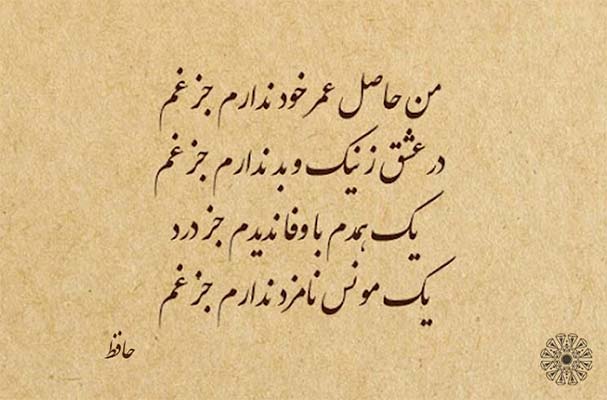 من حاصل عمر خود ندارم جز غم
در عشق ز نیک و بد ندارم جز غم
یک همدم باوفا ندیدم جز درد
یک مونس نامزد ندارم جز غم
حافظ